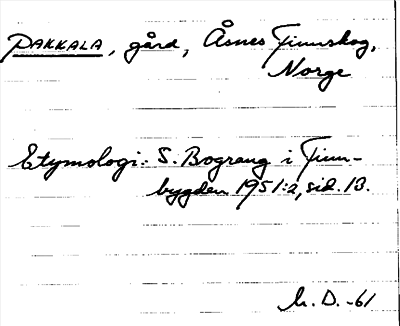 PAKKALA, gård, Åsnes Finnskog,
Norge
Etymologi: S. Bograng i Finn-
bygden 1951:2, sid. 13.
h. D. -61